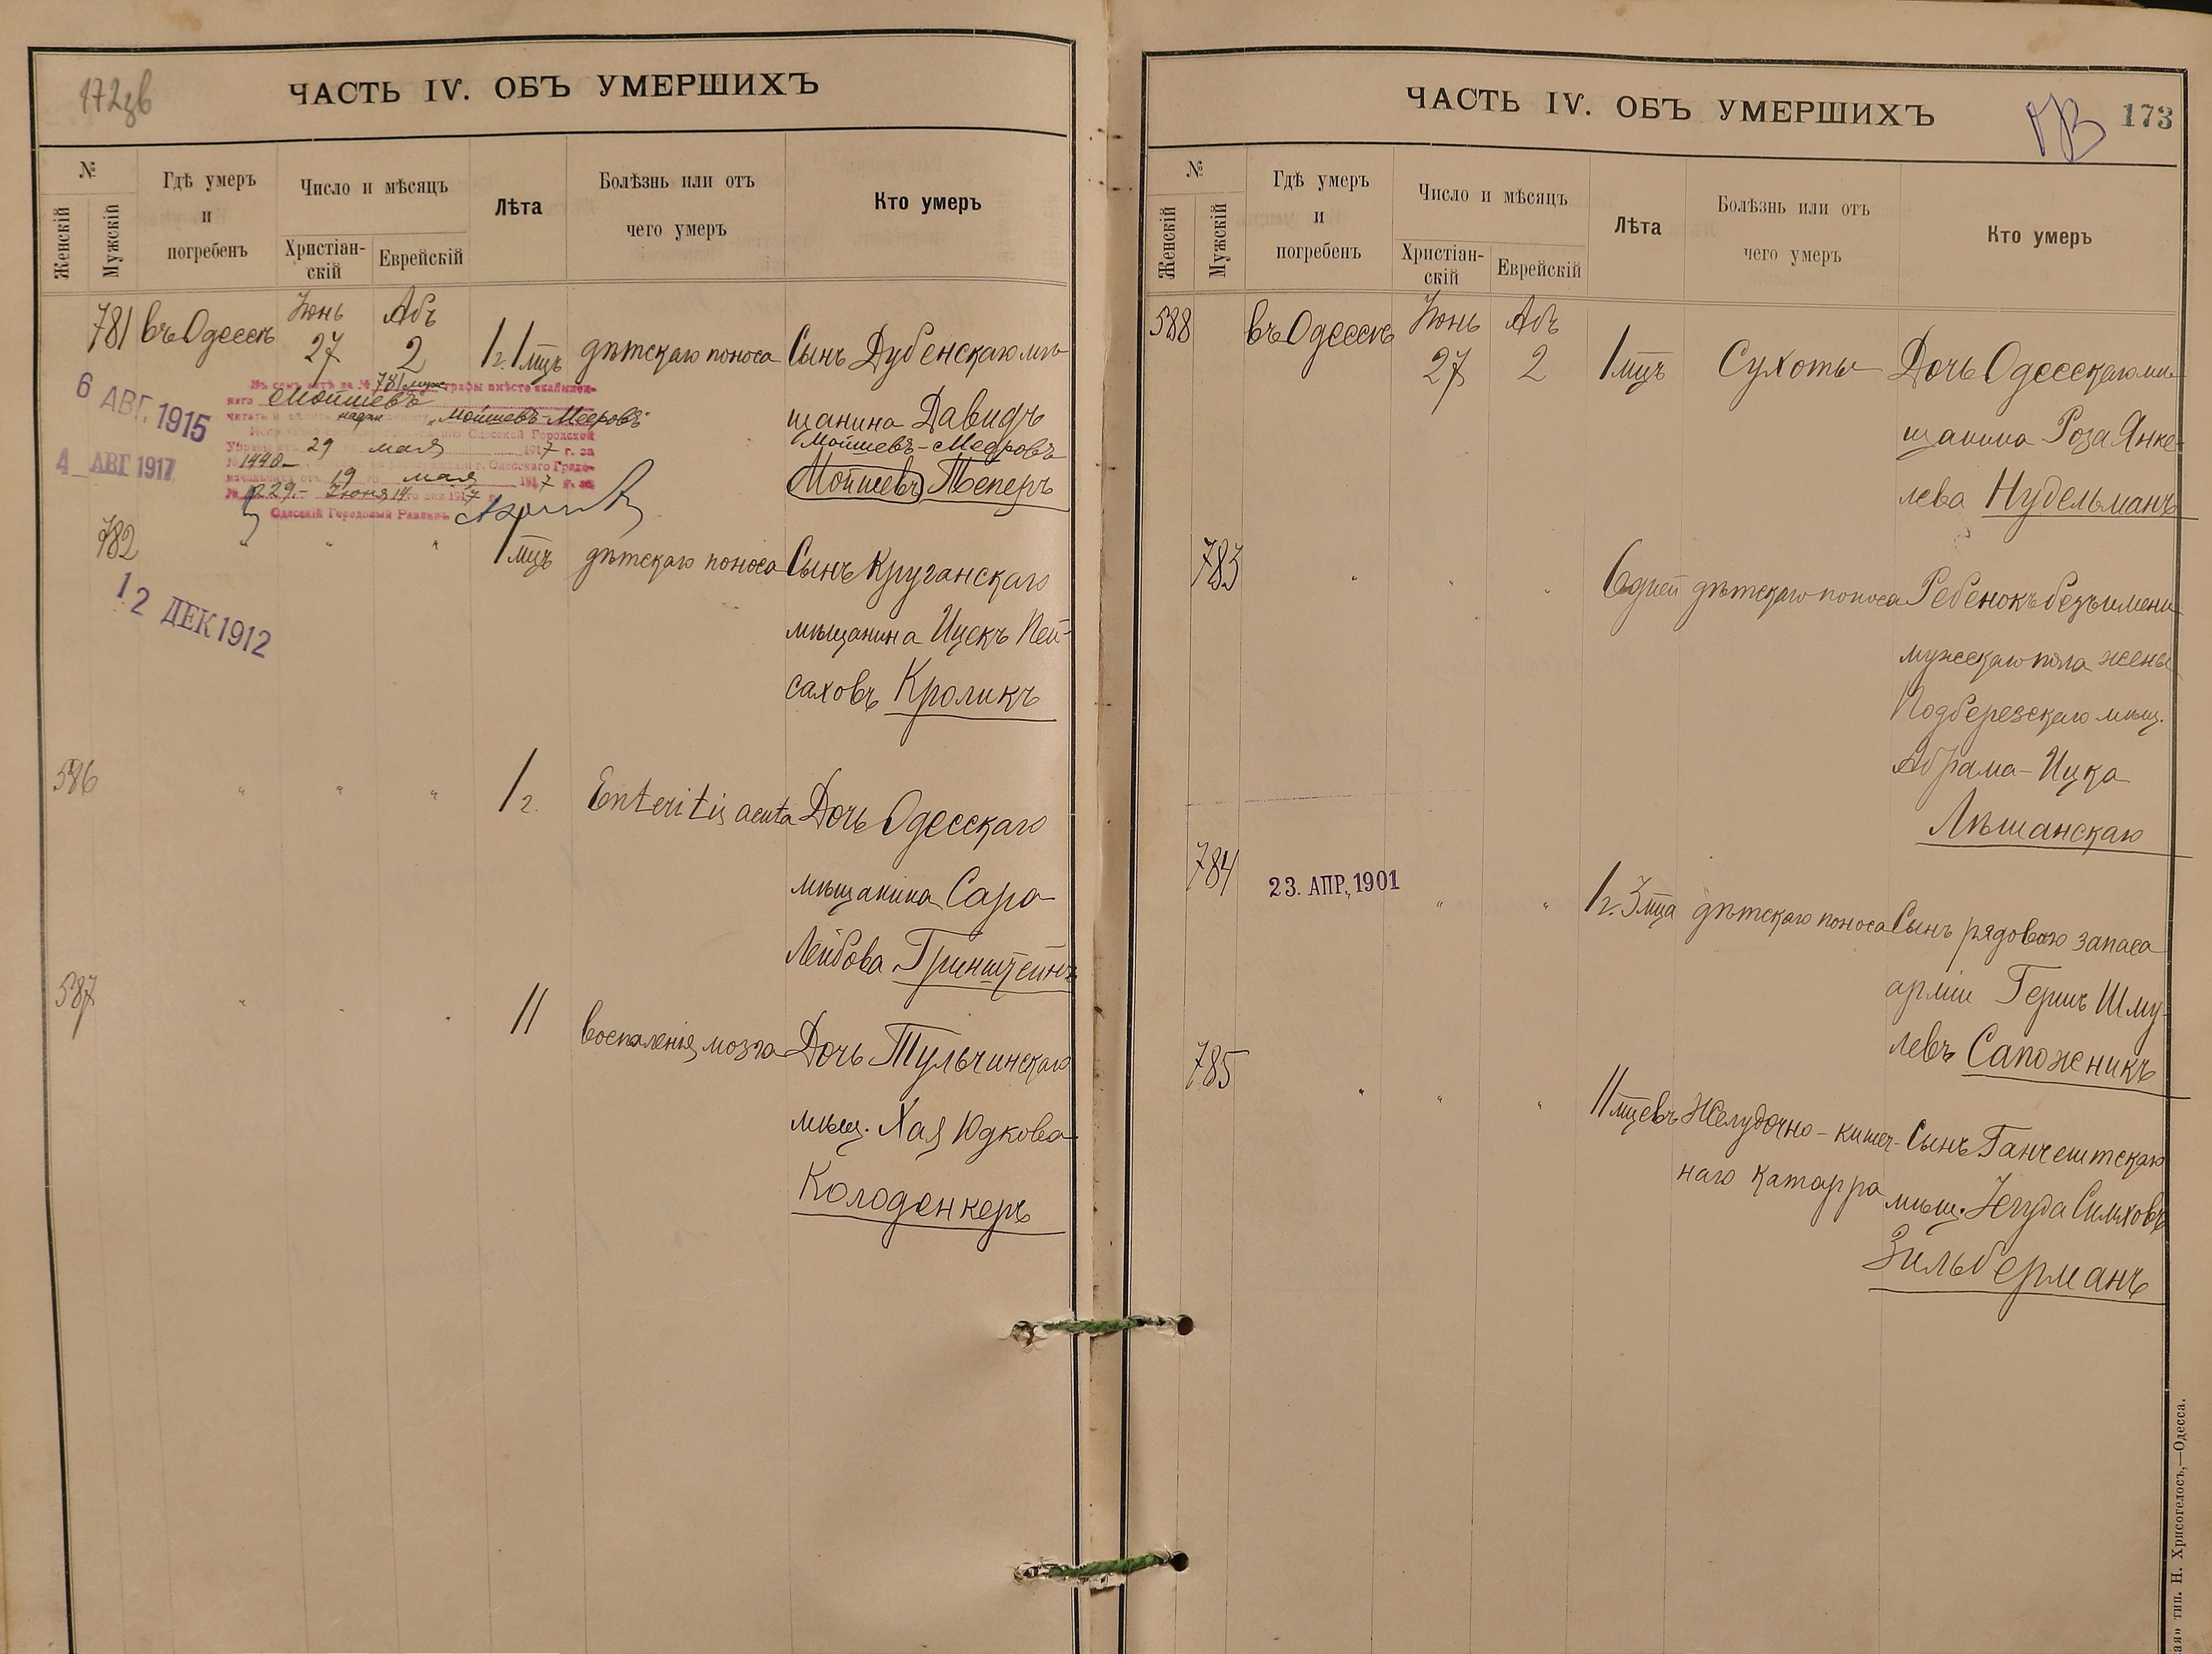 172зв
ЧАСТЬ IV. ОБЪ УМЕРШИХЪ
№
Женскій
Мужскій
Гдѣ умеръ
и
погребенъ
Число и мѣсяцъ
Христіан-
скій
Еврейскій
Лѣта
Болѣзнь или отъ
чего умеръ
Кто умеръ
781 въ Одессѣ Іюнь 27 Абъ 2 1 г. 1 мцъ дѣтскаго поноса Сынъ Дубенскаго мѣ-
щанина Давидъ
Мойшевъ-Мееровъ
Мойшевъ Теперъ
6 АВГ. 1915
4 АВГ 1917
Въ семъ актѣ за № 781 муж графы вмѣсто
Мойшевъ
надж „Мойшевъ-Мееровъ"
Одесской Городской
29 мая 1917 г. за
№ 1440
г. Одесскаго Градо-
19 мая 1917 г. за
№ 1229 Іюня 14 дня 1917
Одесскій Городовый Раввинъ
782 " " " 1 мцъ дѣтскаго поноса Сынъ Круганскаго
мѣщанина Ицекъ Пей-
саховъ Кроликъ
12 ДЕК 1912
586 " " " 1 г. Enteritis acuta Дочь Одесскаго
мѣщанина Сара
Лейбова Гринштейнъ
587 " " " 11 воспаленія мозга Дочь Тульчинскаго
мѣщ. Хая Юдкова
Колоденкеръ
ЧАСТЬ IV. ОБЪ УМЕРШИХЪ
173
№
Женскій
Мужскій
Гдѣ умеръ
и
погребенъ
Число и мѣсяцъ
Христіан-
скій
Еврейскій
Лѣта
Болѣзнь или отъ
чего умеръ
Кто умеръ
588 въ Одессѣ Іюнь 27 Абъ 2 1 мцъ Сухоты Дочь Одесскаго мѣ-
щанина Роза Янке-
лева Нудельманъ
783 " " " 6 дней дѣтскаго поноса Ребенокъ безъ имени
мужскаго пола жены
Подберезскаго мѣщ.
Абрама-Ицка
Лѣшанскаго
784 23. АПР. 1901 " " 1 г. 3 мца дѣтскаго поноса Сынъ рядового запаса
арміи Гершъ Шму-
левъ Сапожникъ
785 " " " 11 мцевъ Желудочно-кишеч- Сынъ Ганчештскаго
наго катарра мѣщ. Іегуда Симховъ
Зильберманъ
тип. Н. Хрисогелосъ,—Одесса.